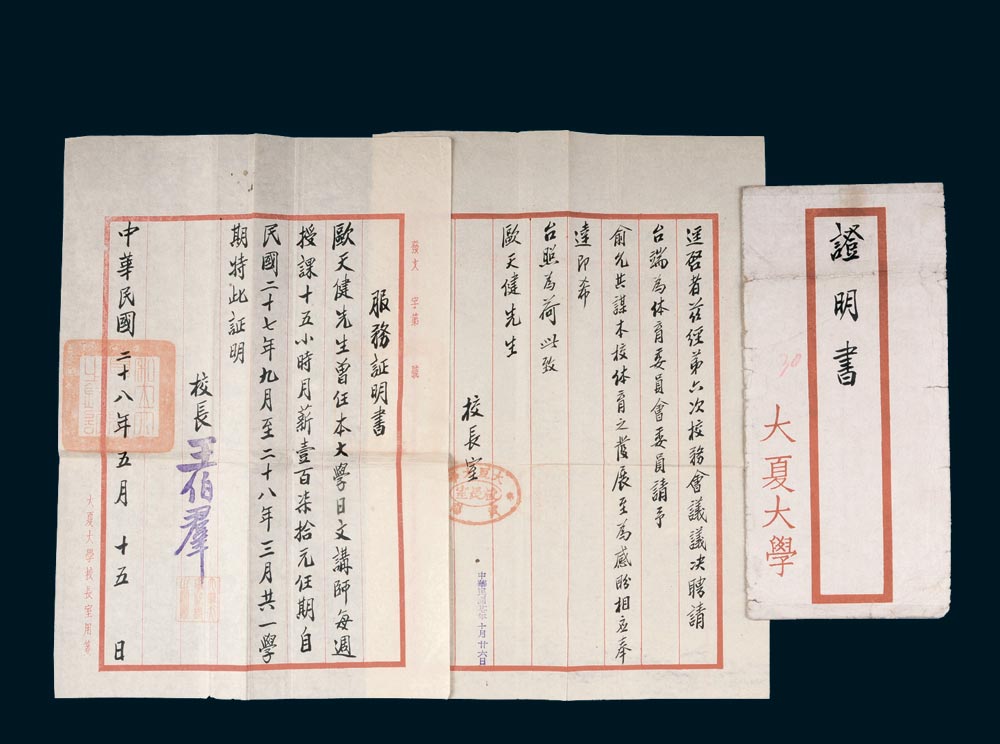 證明書
大夏大學
30
逕啓者茲經第六次校務會議議決聘請
台端為体育委員會委員請予
俞允共謀本校体育之發展至為感盼相应奉
達即希
台照為荷此致
歐天健先生
校長室
十月廿六日
發文 字第 號
服務証明書
歐天健先生曾任本大學日文講師每週
授課十五小時月薪壹百柒拾元任期自
民國二十七年九月至二十八年三月共一學
期特此証明
校長王伯羣
中華民國二十八年五月十五日
大夏大學校長室用箋